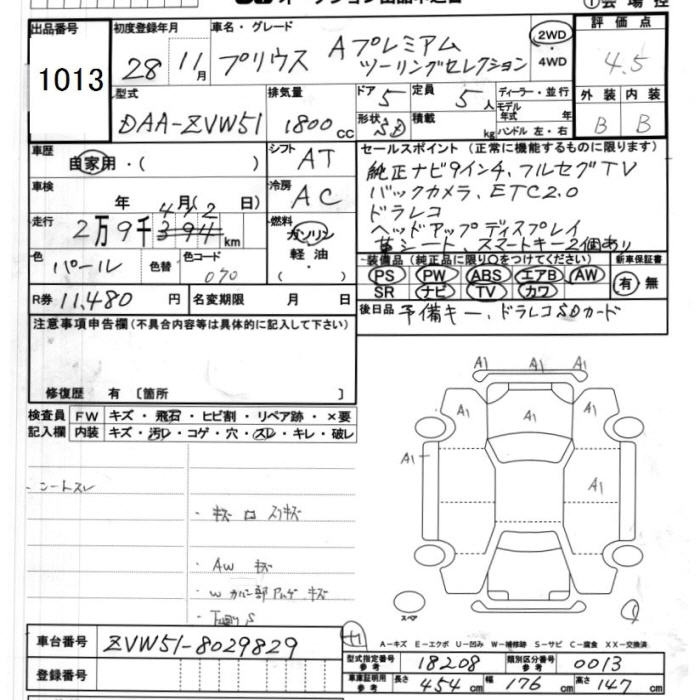 出品番号 初度登録年月 車名・グレード 評価点
1013 28 11月 プリウス Aプレミアム ツーリングセレクション 2WD・4WD 4.5
型式 排気量 ドア 5 定員 5人 ディーラー・並行 外装 内装
DAA-ZVW51 1800cc 形状 SD 積載 kg モデル年式 年 ハンドル 左・右 B B
車歴 自家用・( ) シフト AT セールスポイント (正常に機能するものに限ります)
純正ナビ9インチ、フルセグTV
車検 年 月 日) 冷房 AC バックカメラ、ETC2.0
ドラレコ
走行 2万9千394km 燃料 ガソリン・軽油・( ) ヘッドアップディスプレイ
革シート、スマートキー2個あり
色 パール 色替 色コード 070 装備品 (純正品に限り○をつけてください) 新車保証書
PS PW ABS エアB AW 有・無
SR ナビ TV カワ
R券 11,480円 名変期限 月 日 後日品 予備キー、ドラレコSDカード
注意事項申告欄 (不具合内容等は具体的に記入して下さい)
修復歴 有 〔箇所 〕
検査員 FW キズ・飛石・ヒビ割・リペア跡・×要
記入欄 内装 キズ・汚レ・コゲ・穴・スレ・キレ・破レ
A1 A1 A1
A1 A1 A1
A1 A1
・シートスレ
・キズ ロ スリキズ
・AW キズ
スペア
A-キズ E-エクボ U-凹み W-補修跡 S-サビ C-腐食 XX-交換済
車台番号 ZVW51-8029829
型式指定番号 参考 18208 類別区分番号 参考 0013
登録番号
車庫証明用 参考 長さ 454cm 幅 176cm 高さ 147cm